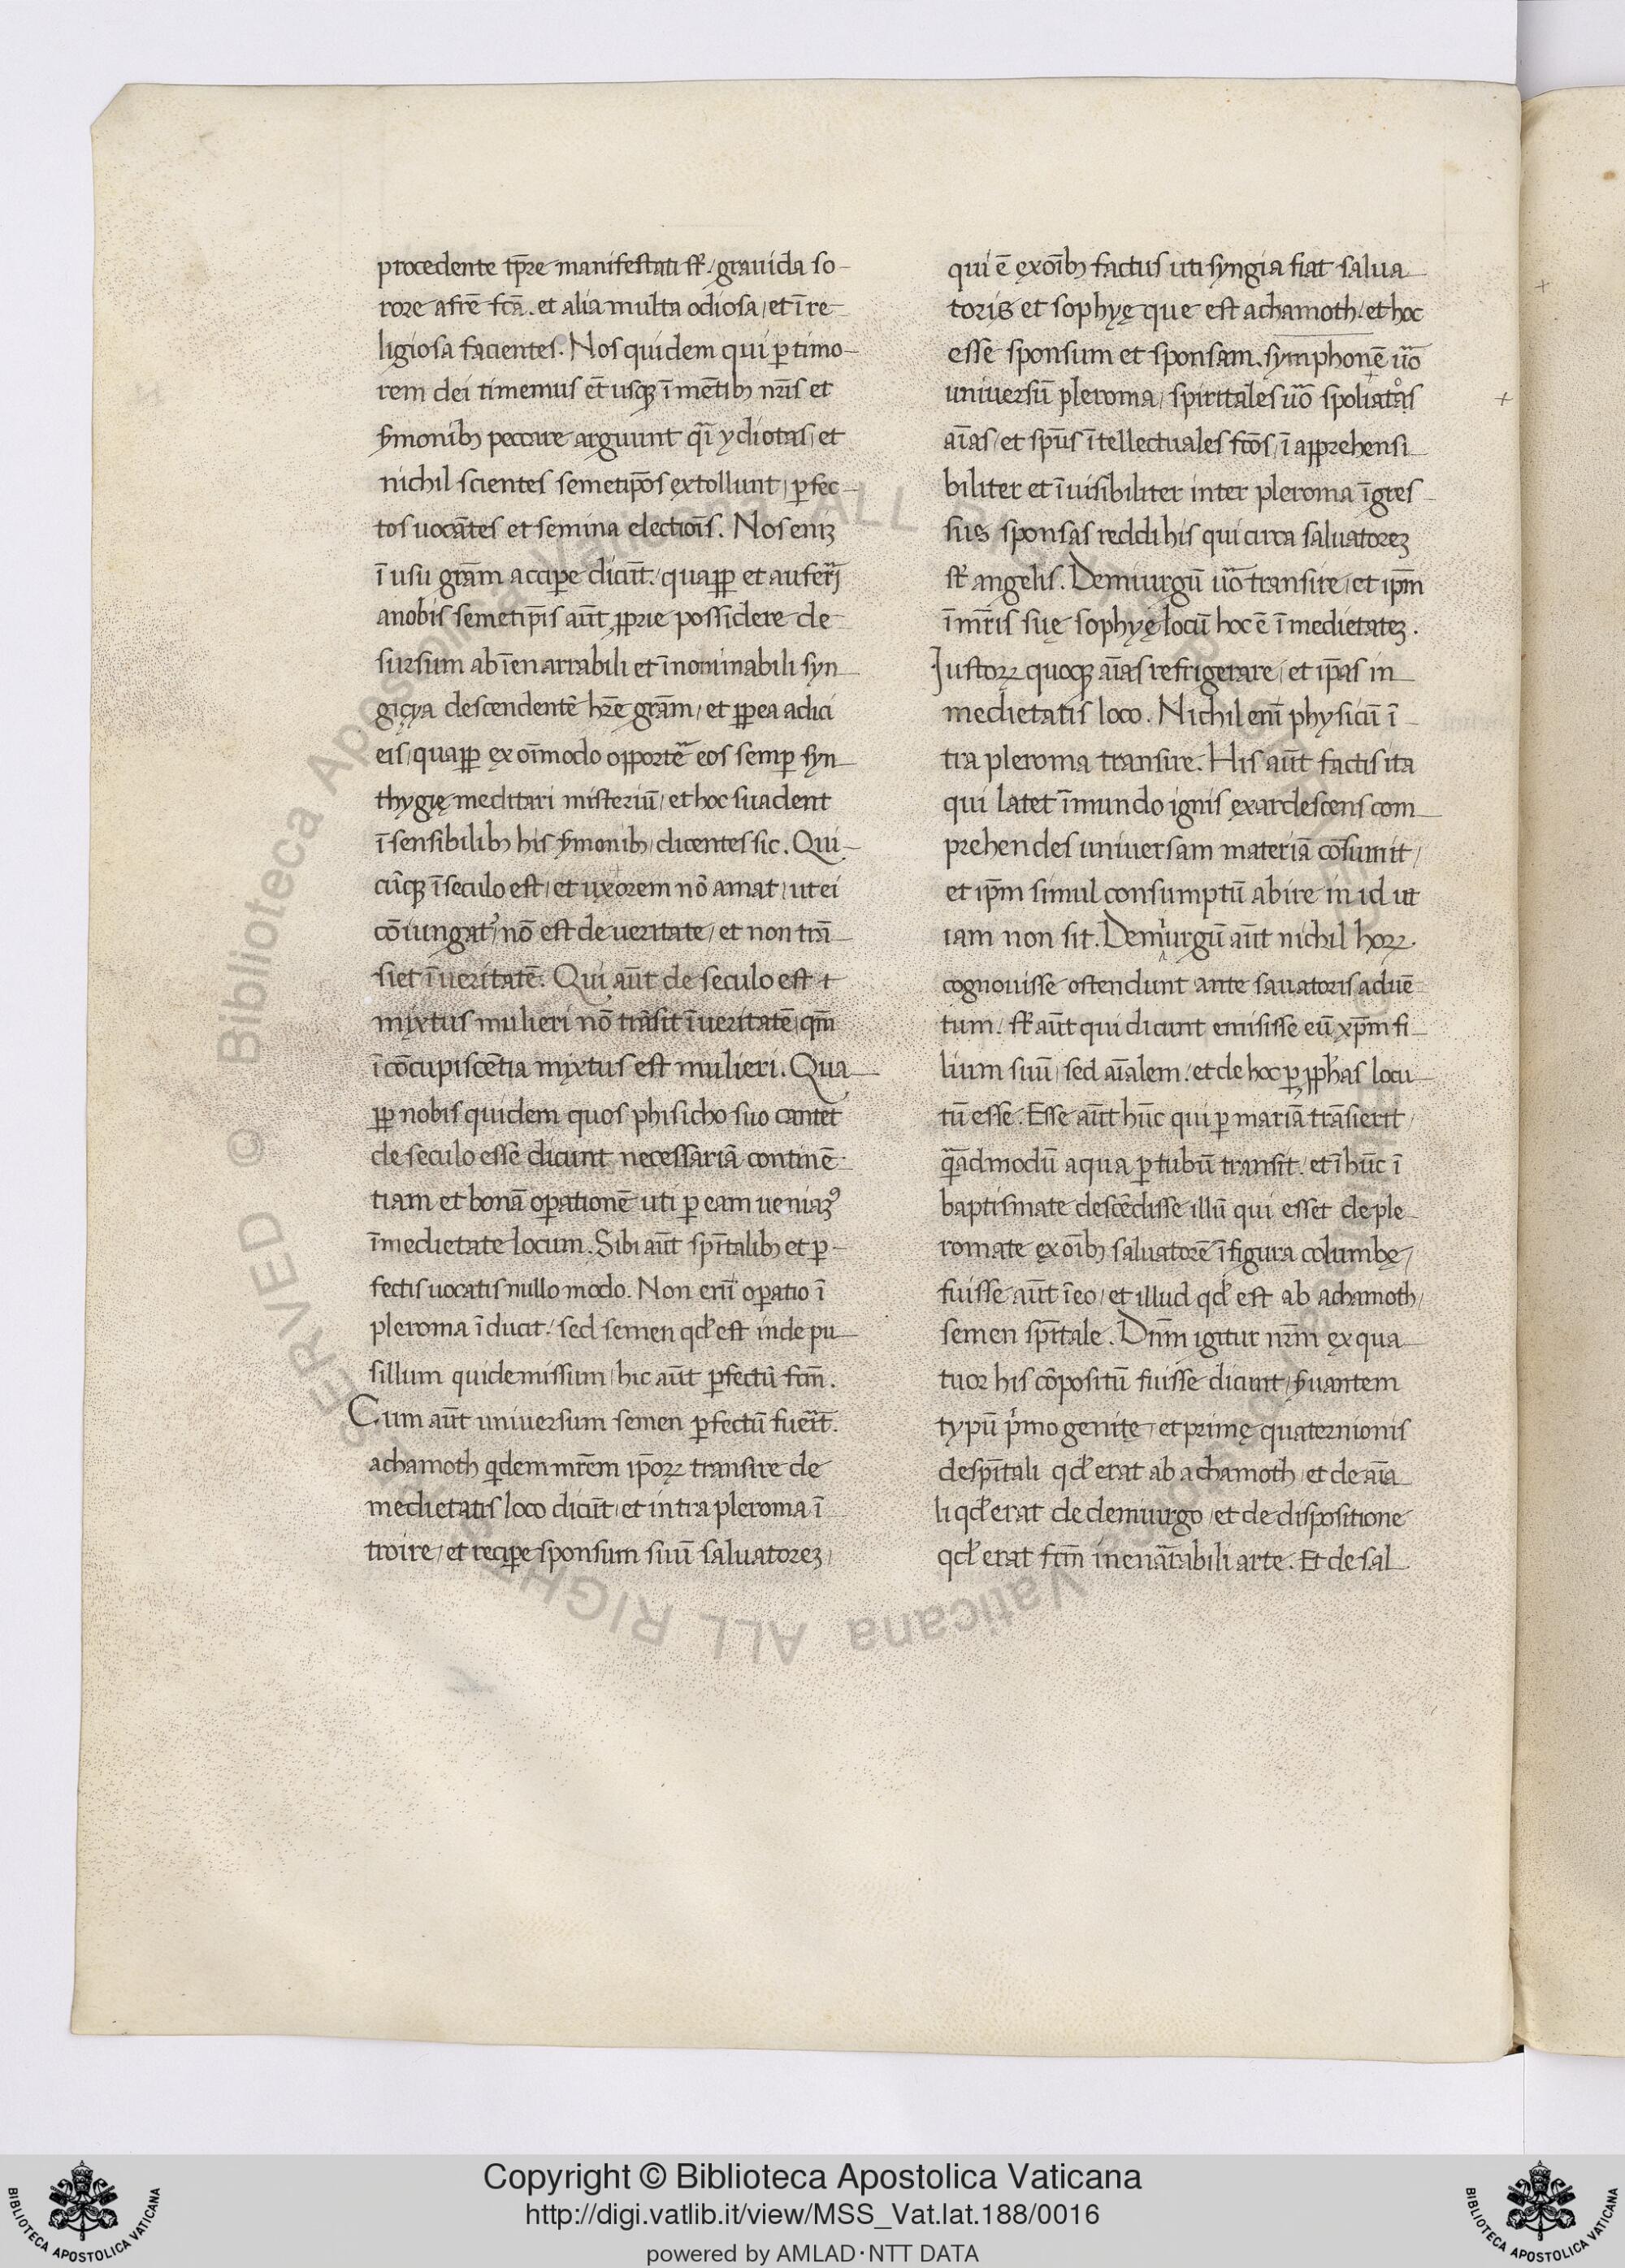 procedente tp̄re manifestati st̄ / grauida so-
rore a fr̄e fc̄a . et alia multa odiosa / et ī re-
ligiosa facientes . Nos quidem qui ꝑ timo-
rem dei timemus et̄ usqꝫ ī mētibꝫ nr̄is et
s̄monibꝫ peccare arguunt q̄i ydiotas / et
nichil scientes semetip̄os extollunt / ꝑfec-
tos uocātes et semina electiōis . Nos enīꝫ
ī usu grām accipe dicūt . / quaꝓp et auferri
a nobis semetip̄is aūt ꝓprie possidere de-
sursum ab īenarrabili et īnominabili syn
gicya descendentē hr̄e grām / et ꝓp ea adici
eis / quaꝓp ex oīmodo opporter̄ eos semꝑ syn
thygię meditari misteriū / et hoc suadent
īsensibilibꝫ his s̄monibꝫ / dicentes sic . Qui-
cūqꝫ ī seculo est / et uxorem nō amat / ut ei
cōiungatᷣ / nō est de ueritate / et non trā
siet ī ueritatē . Qui aūt de seculo est ⁊
mixtus mulieri nō trāsit ī ueritatē / qm̄
ī cōcupiscētia mixtus est mulieri . Qua
ꝓp nobis quidem quos phisicho suo cantet
de seculo esse dicunt necessariā continē
tiam et bonā oꝑationē uti ꝑ eam ueniaꝫꝰ
ī medietate locum . Sibi aūt spīталibꝫ et ꝑ-
fectis uocatis nullo modo . Non enī oꝑatio ī
pleroma īducit . / sed semen qd̄ est inde pu
sillum quidem issum / hic aūt ꝑfectū fcm̄ .
Cum aūt uniuersum semen ꝑfectū fuer̄it .
achamoth qidem mr̄em ip̄oꝝ transire de
medietatis loco dicūt / et intra pleroma ī
troire / et recipe sponsum suū saluatoreꝫ /
qui ē ex oībꝫ factus uti syngia fiat salua
toris et sophyę que est achamoth . / et hoc
esse sponsum et sponsam . symphonē uo᷒
uniuersū pleroma / spiritales uo᷒ spoliatas
aīas / et sp̄us ītellectuales fcōs / ī apprehensi
biliter et īuisibiliter inter pleroma īgres-
sus sponsas reddi his qui circa saluatoreꝫ
st̄ angelis . Demiurgū uo᷒ transire / et ip̄m
ī mr̄is suę sophyę locū hoc ē ī medietateꝫ .
Justoꝝ quoqꝫ aīas refrigerare / et ip̄as in
medietatis loco . Nichil enī physicū ī-
tra pleroma transire . His aūt factis ita
qui latet ī mundo ignis exardescens com
prehendes uniuersam materiā cōsumit /
et ip̄m simul consumptū abire in id ut
iam non sit . Demiurgū aūt nichil hoꝝ .
cognouisse ostendunt ante sauatoris aduē
tum . st̄ aūt qui dicunt emisisse eū xp̄m fi
lium suū / sed aīalem . / et de hoc ꝑ ꝓphas locu
tū esse . Esse aūt hūc qui ꝑ mariā trāsierit /
q̄admodū aqua ꝑ tubū transit . / et ī hūc ī
baptismate descēdisse illū qui esset de ple
romate ex oībꝫ saluatorē ī figura columbę /
fuisse aūt ī eo / et illud qd̄ est ab achamoth /
semen spīтale . Dnm̄ igitur nr̄m ex qua
tuor his cōpositū fuisse dicunt / s̄uantem
typū pͥmogenitę / et primę quaternionis
de spīтali qd̄ erat ab achamoth / et de aīa
li qd̄ erat de demiurgo / et de dispositione
qd̄ erat fcm̄ inenarrabili arte . Et de sal
Copyright © Biblioteca Apostolica Vaticana
http://digi.vatlib.it/view/MSS_Vat.lat.188/0016
powered by AMLAD·NTT DATA
BIBLIOTECA APOSTOLICA VATICANA
BIBLIOTECA APOSTOLICA VATICANA